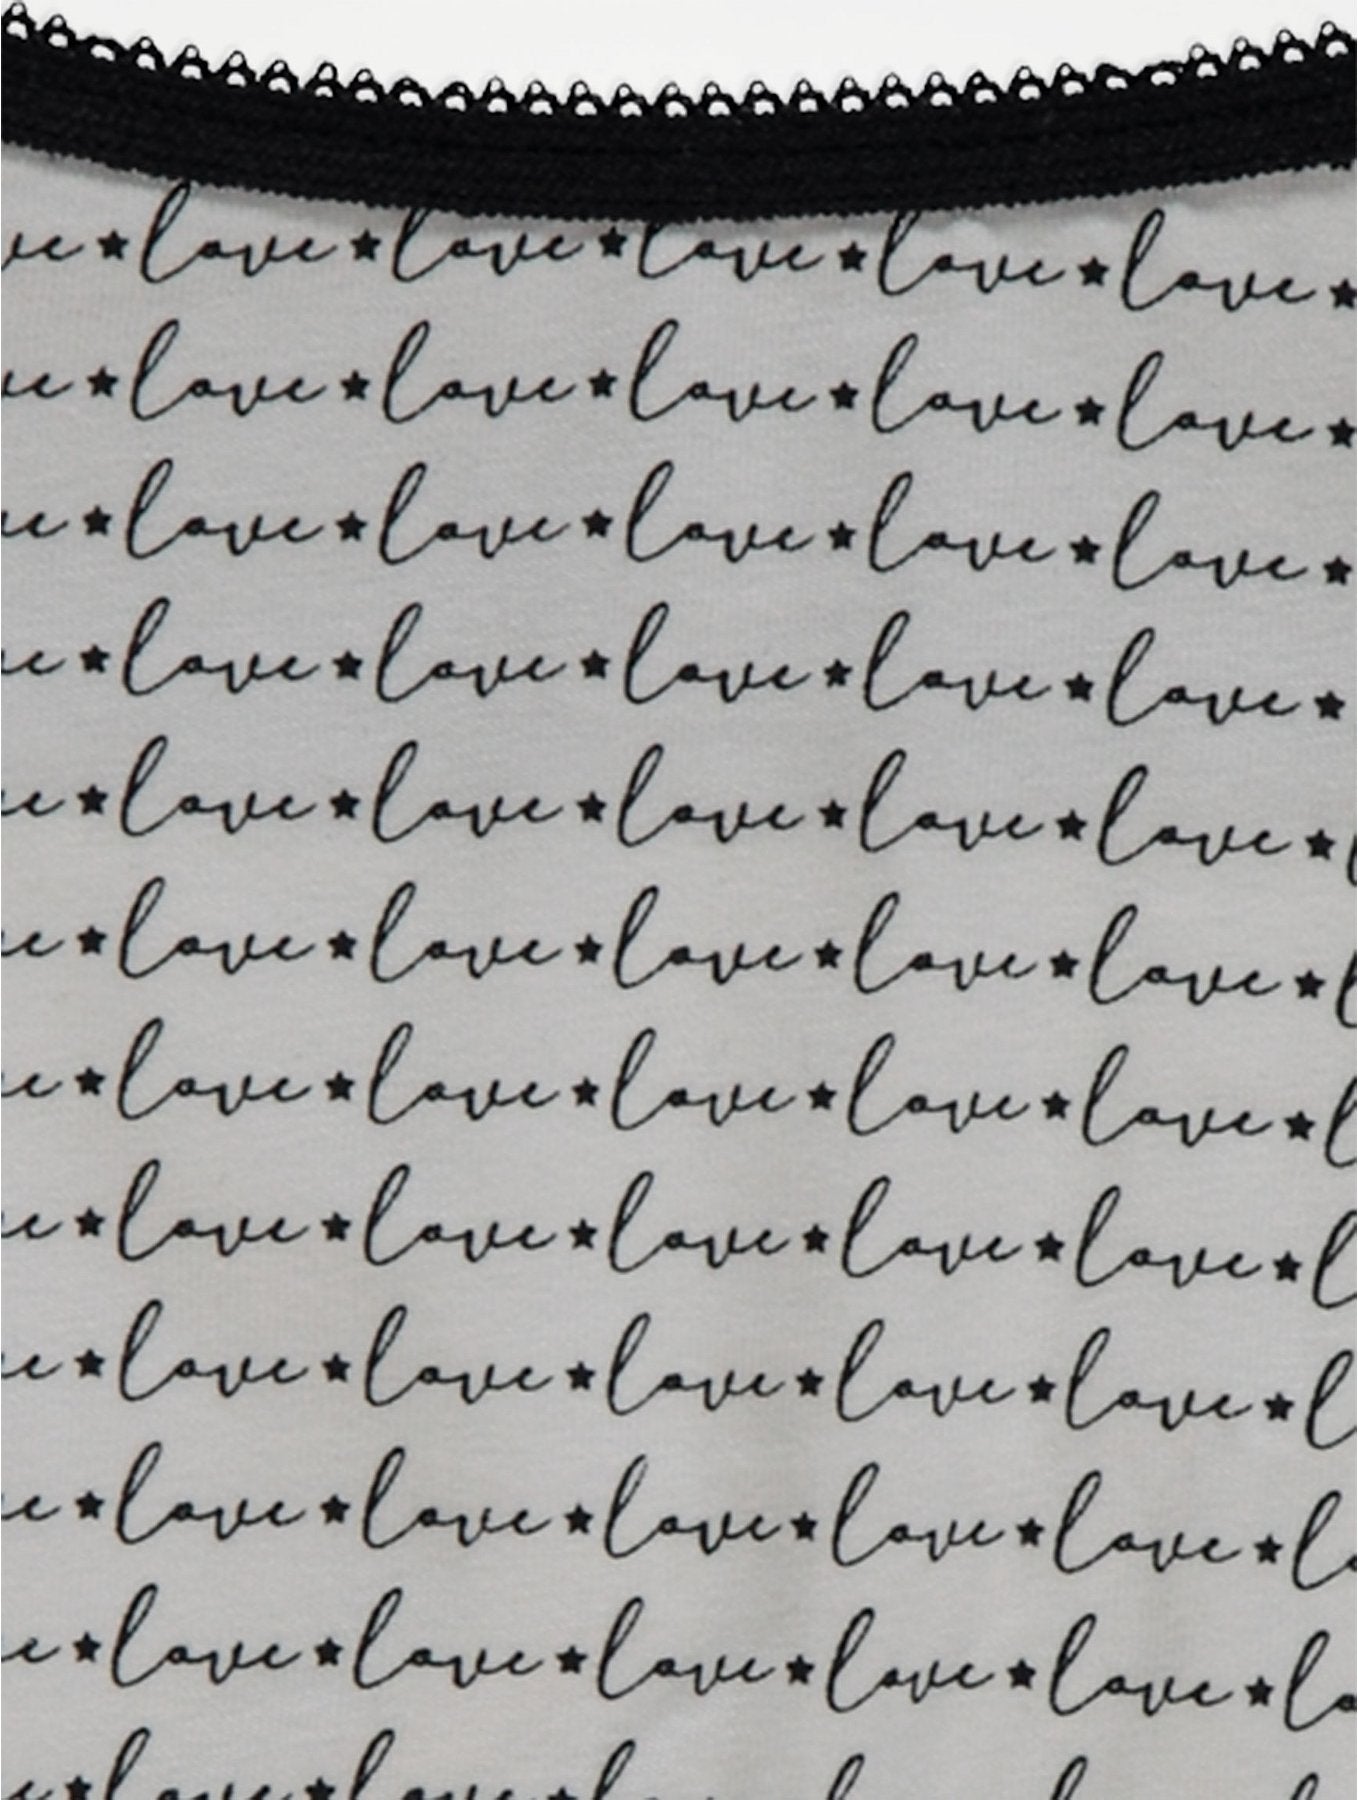 love★love★love★love★love★
love★love★love★love★love★
love★love★love★love★love★
love★love★love★love★love★
love★love★love★love★love★
love★love★love★love★love★
love★love★love★love★love★
love★love★love★love★love★
love★love★love★love★love★
love★love★love★love★love★
love★love★love★love★love★
love★love★